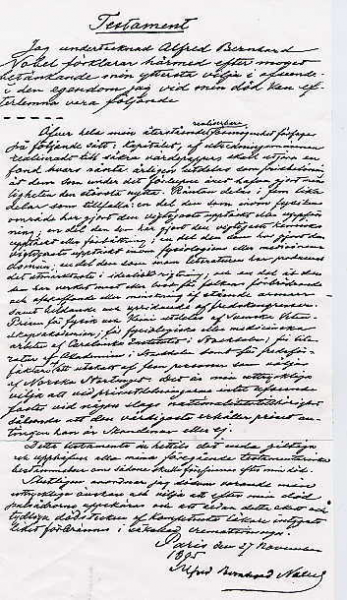 Testament
Jag undertecknad Alfred Bernhard
Nobel förklarar härmed efter moget
betänkande min yttersta vilja i afseende
å den egendom jag vid min död kan ef-
terlemna vara följande
realiserbara
Öfver hela min återstående förmögenhet förfogas
på följande sätt: Kapitalet, af utredningsmännen
realiserade till säkra värdepapper, skall utgöra en
fond hvars ränta årligen utdelas som prisbelöning
åt dem som under det förlupne året hafva gjort men-
skligheten den största nytta. Räntan delas i fem lika
delar som tillfalla: en del den som inom fysikens
område har gjort den vigtigaste upptäckt eller uppfin-
ning; en del den som har gjort den vigtigaste kemiska
upptäckt eller förbättring; en del den som har gjort den
vigtigaste upptäckt inom fysiologiens eller medicinens
domän; en del den som inom literaturen har producerat
det utmärktaste i idealisk rigtning; och en del åt den
som har verkat mest eller bäst för folkens förbrödrande
och afskaffande eller minskning af stående armeer
samt bildande och spridande af fredskongresser.
Prisen för fysik och kemi utdelas af Svenska Veten-
skapsakademien; för fysiologiska eller medicinska
arbeten af Carolinska Institutet i Stockholm; för lite-
ratur af Akademien i Stockholm samt för fredsför-
fäktare af ett utskott af fem personer som väljas
af Norska Stortinget. Det är min uttryckliga
vilja att vid prisutdelningarne intet afseende
fästes vid någon slags nationalitetstillhörighet
sålunda att den värdigaste erhåller priset an-
tingen han är Skandinav eller ej.
Detta testamente är hittills det enda giltiga
och upphäfver alla mina föregående testamentariska
bestämmelser om sådane skulle förefinnas efter min död.
Slutligen anordnar jag såsom varande min
uttryckliga önskan och vilja att efter min död
pulsådrorna uppskäras och att sedan detta skett och
tydliga dödstecken af kompetenta läkare intygats
liket förbrännes i såkallad crematorieugn.
Paris den 27 November
1895
Alfred Bernhard Nobel